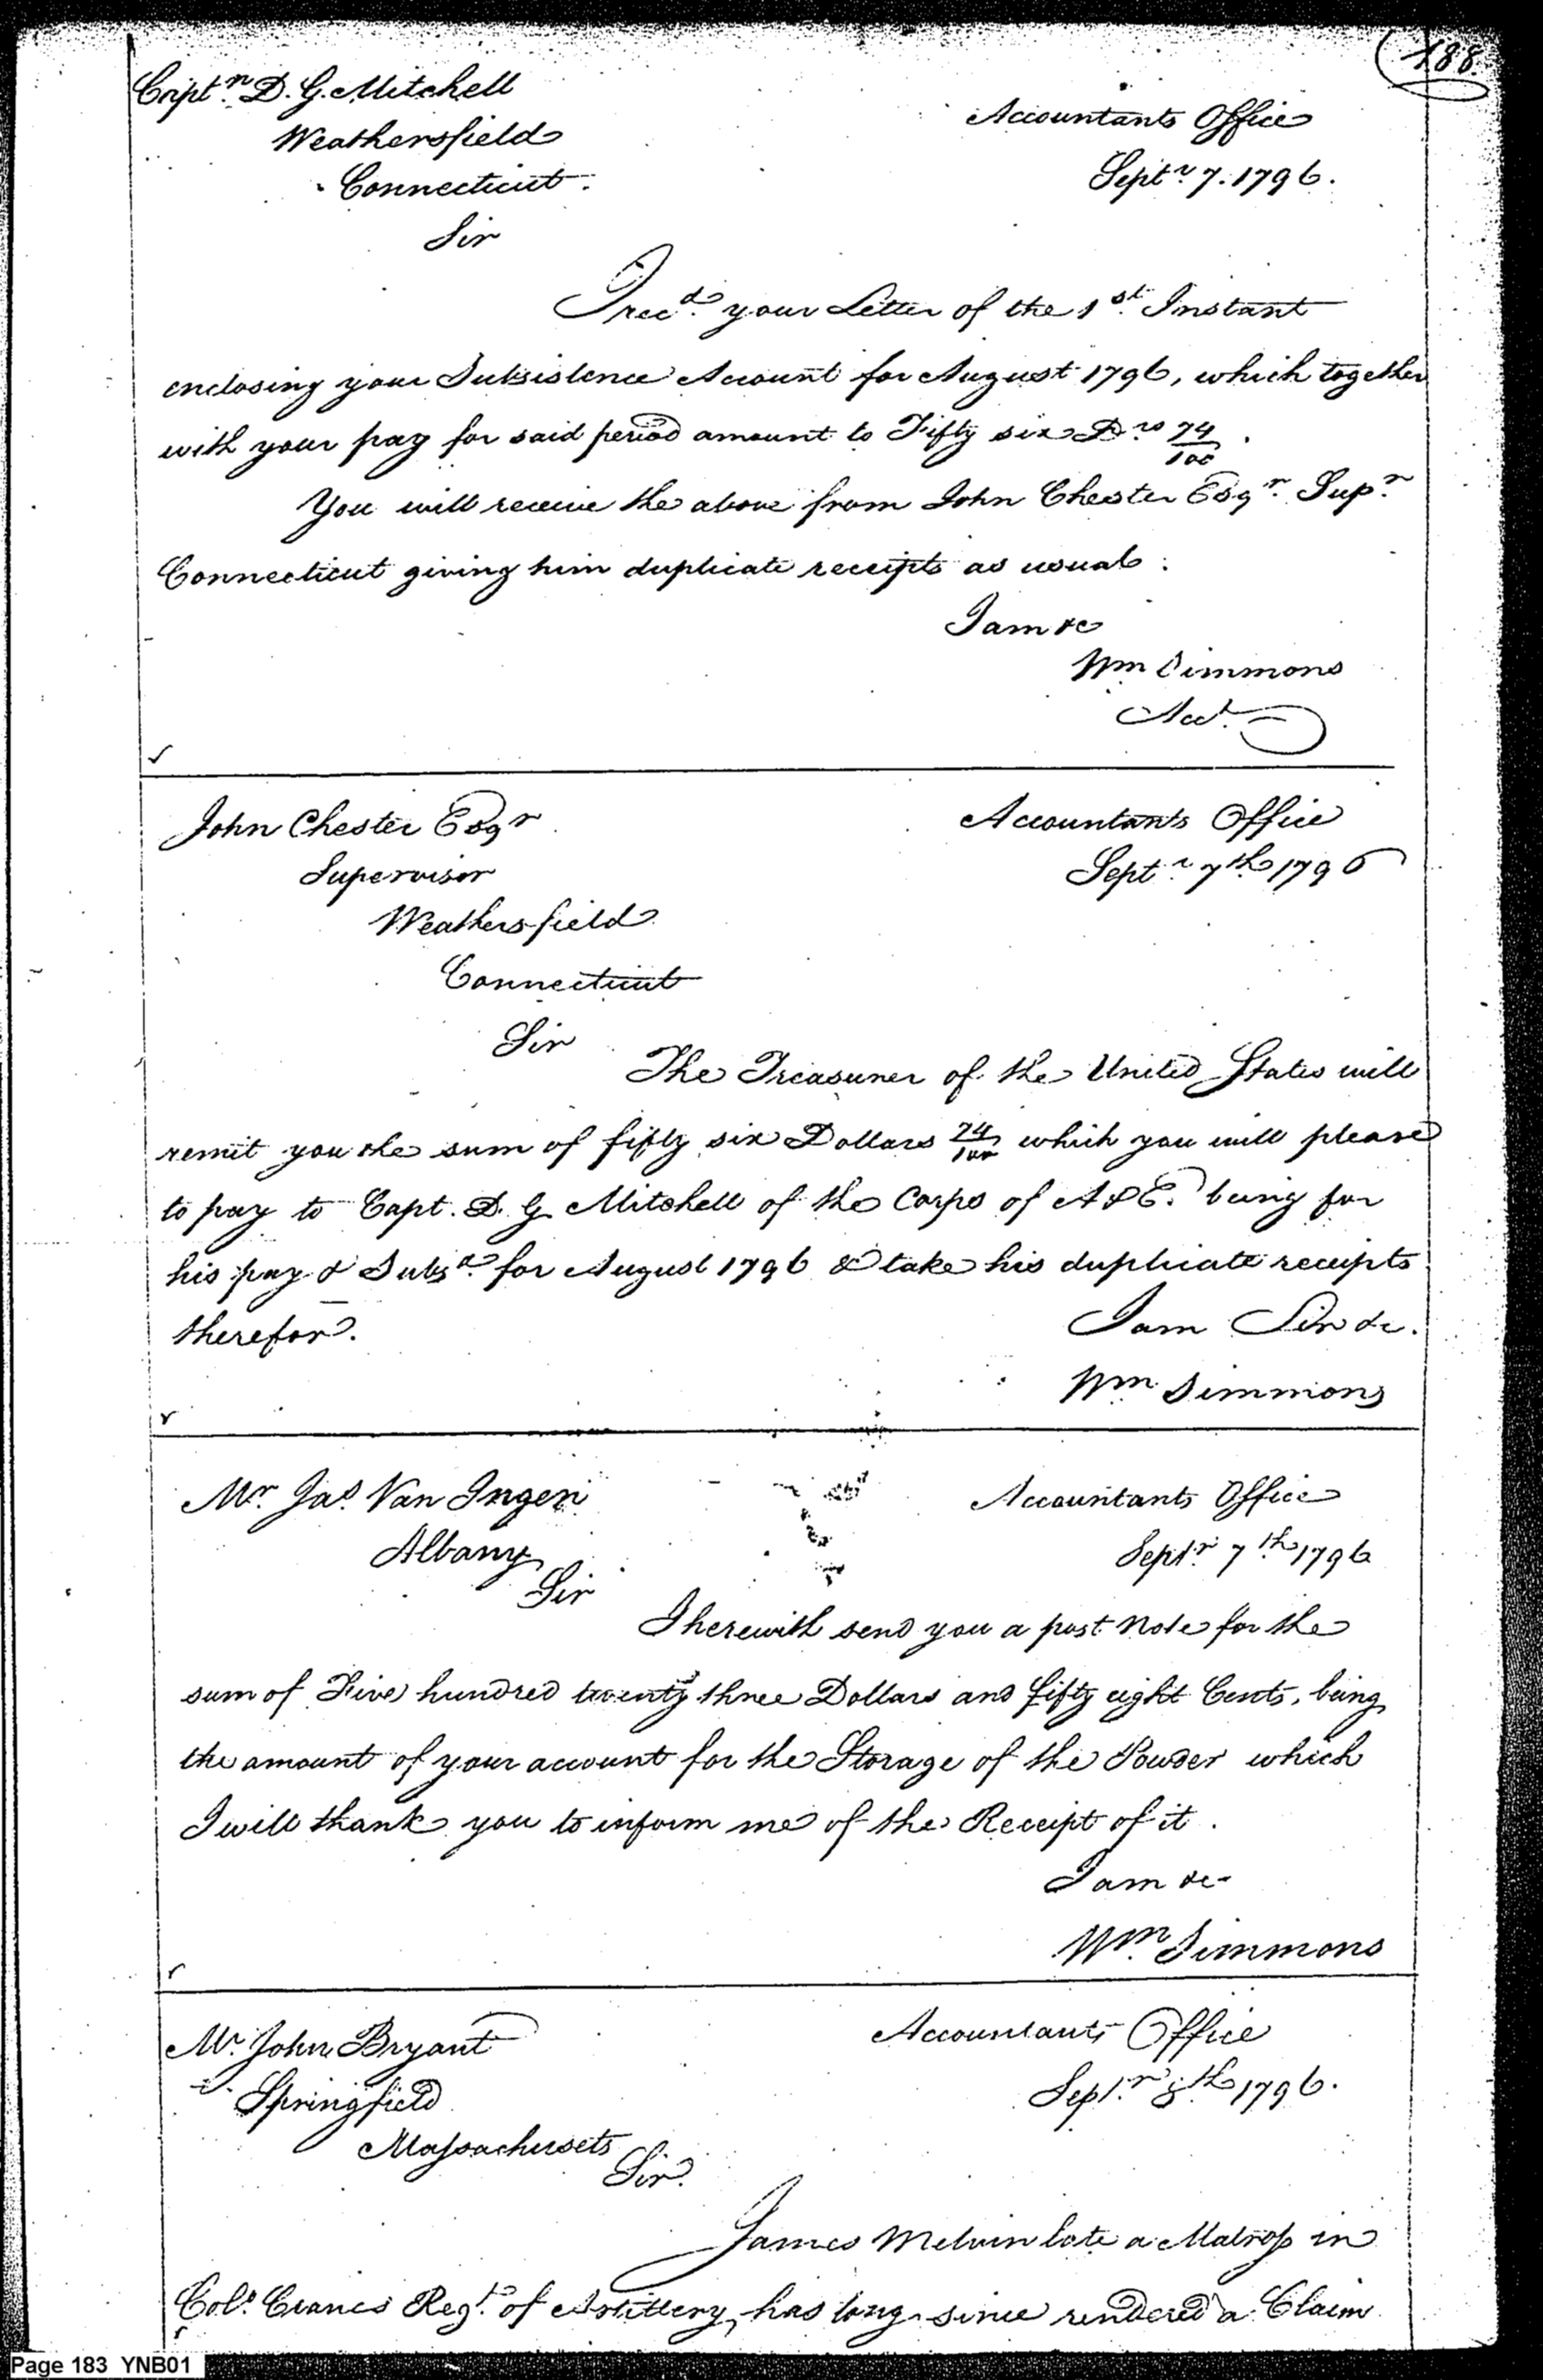 188.
Capt.n D. G. Mitchell
Weathersfield
Connecticut.
Accountants Office
Sept.r 7. 1796.
Sir
I rec.d your Letter of the 1st. Instant
enclosing your Subsistence Account for August 1796, which together
with your pay for said period amount to Fifty six D.rs 74/100.
You will receive the above from John Chester Esq.r Sup.r
Connecticut giving him duplicate receipts as usual.
I am &c
Wm Simmons
Acct.
John Chester Esqr
Supervisor
Weathersfield
Connecticut
Accountants Office
Sept.r 7th. 1796
Sir
The Treasurer of the United States will
remit you the sum of fifty six Dollars 74/100 which you will please
to pay to Capt. D. G. Mitchell of the Corps of A & E. being for
his pay & Subs.e for August 1796 & take his duplicate receipts
therefor.
I am Sir &c.
Wm. Simmons
Mr. Jas. Van Ingen
Albany
Accountants Office
Sept.r 7th. 1796
Sir
I herewith send you a post Note for the
sum of Five hundred twenty three Dollars and fifty eight Cents, being
the amount of your account for the Storage of the Powder which
I will thank you to inform me of the Receipt of it.
I am &c
Wm. Simmons
Mr. John Bryant
Springfield
Massachusets
Accountants Office
Sept.r 8th. 1796.
Sir.
James Melvin late a Matross in
Colo. Cranes Regt. of Artillery, has long since rendered a Claim
Page 183 YNB01